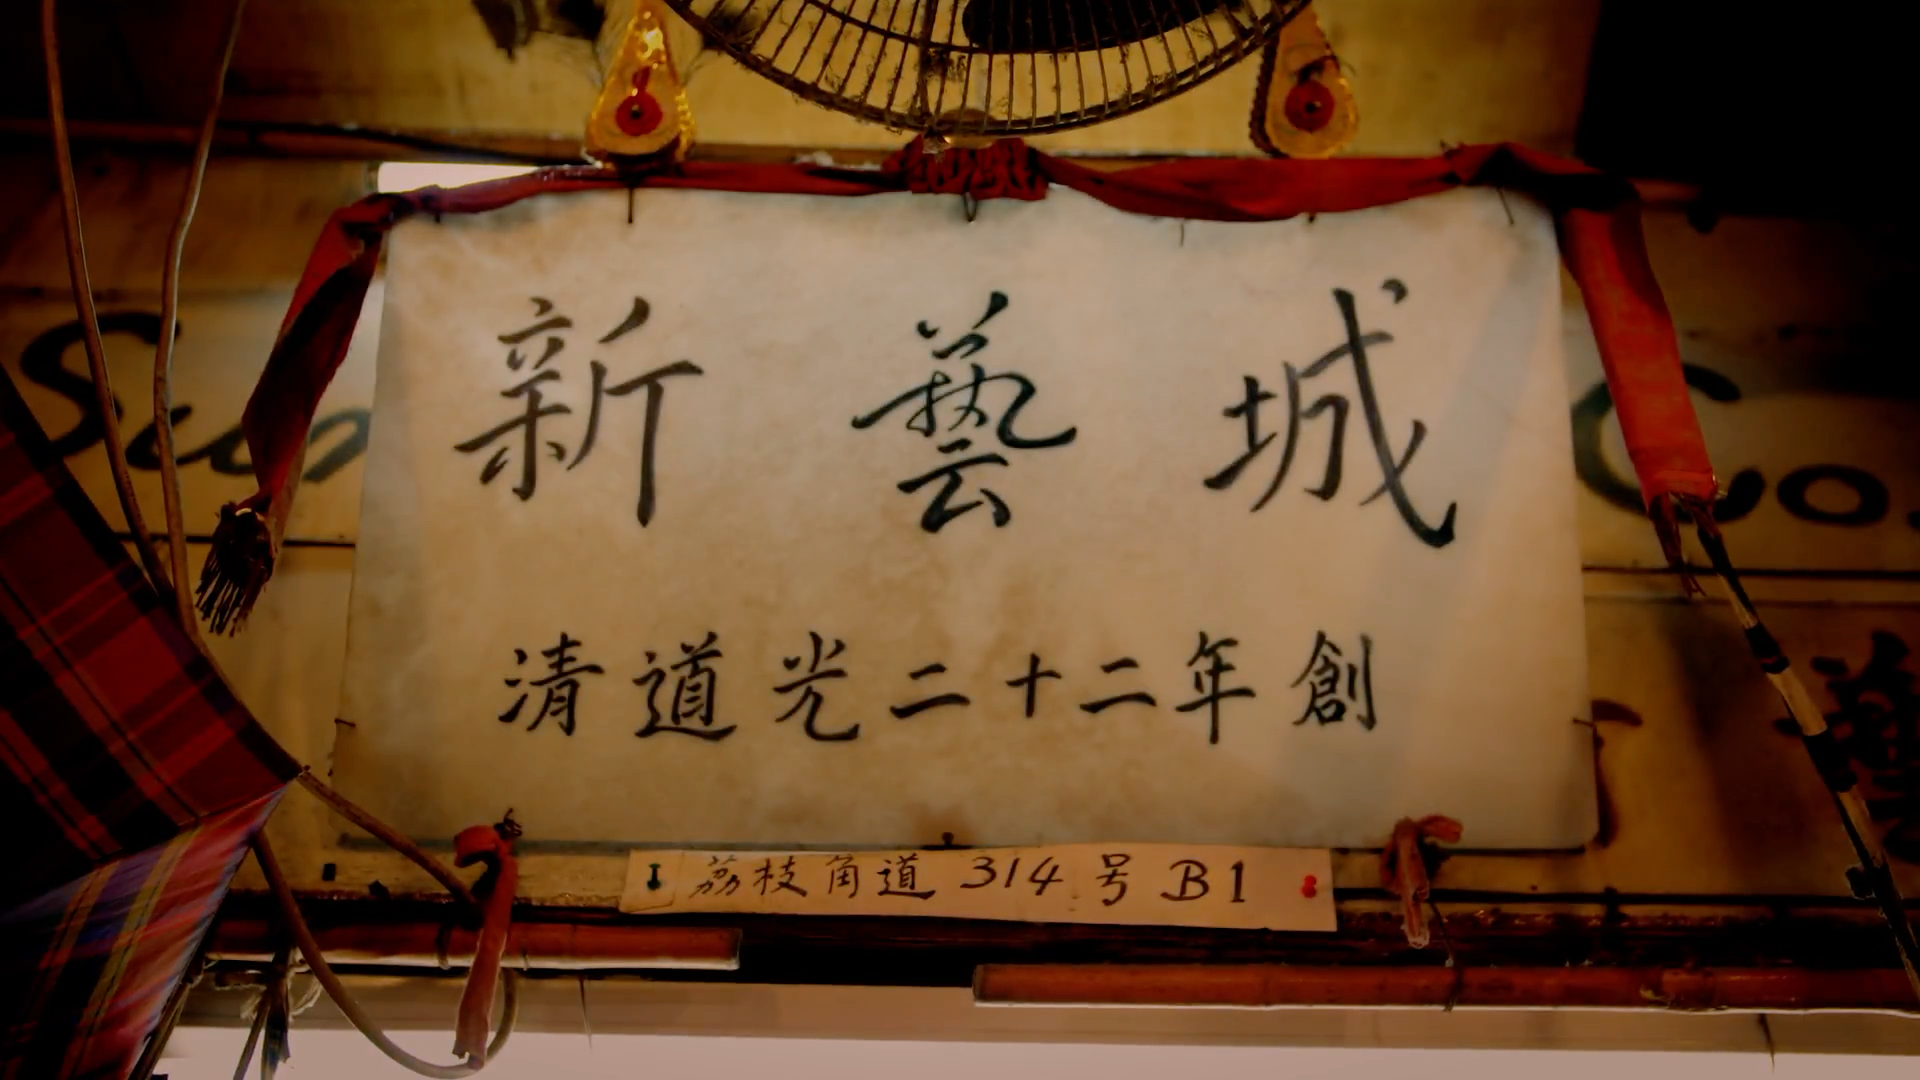 新藝城
清道光二十二年創
荔枝角道 314 号 B1
Sun
Co.